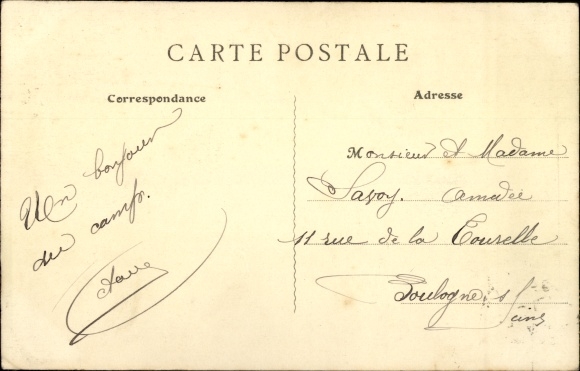 CARTE POSTALE
Correspondance
Un bonjour
du camp.
Adresse
Monsieur et Madame
Savoy. Amadée
11 rue de la Tourelle
Boulogne s/
Seine